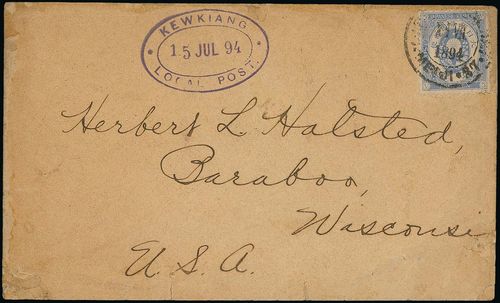 KEWKIANG
15 JUL 94
LOCAL POST.
1894
Herbert L. Halsted,
Baraboo,
Wisconsi
U. S. A.